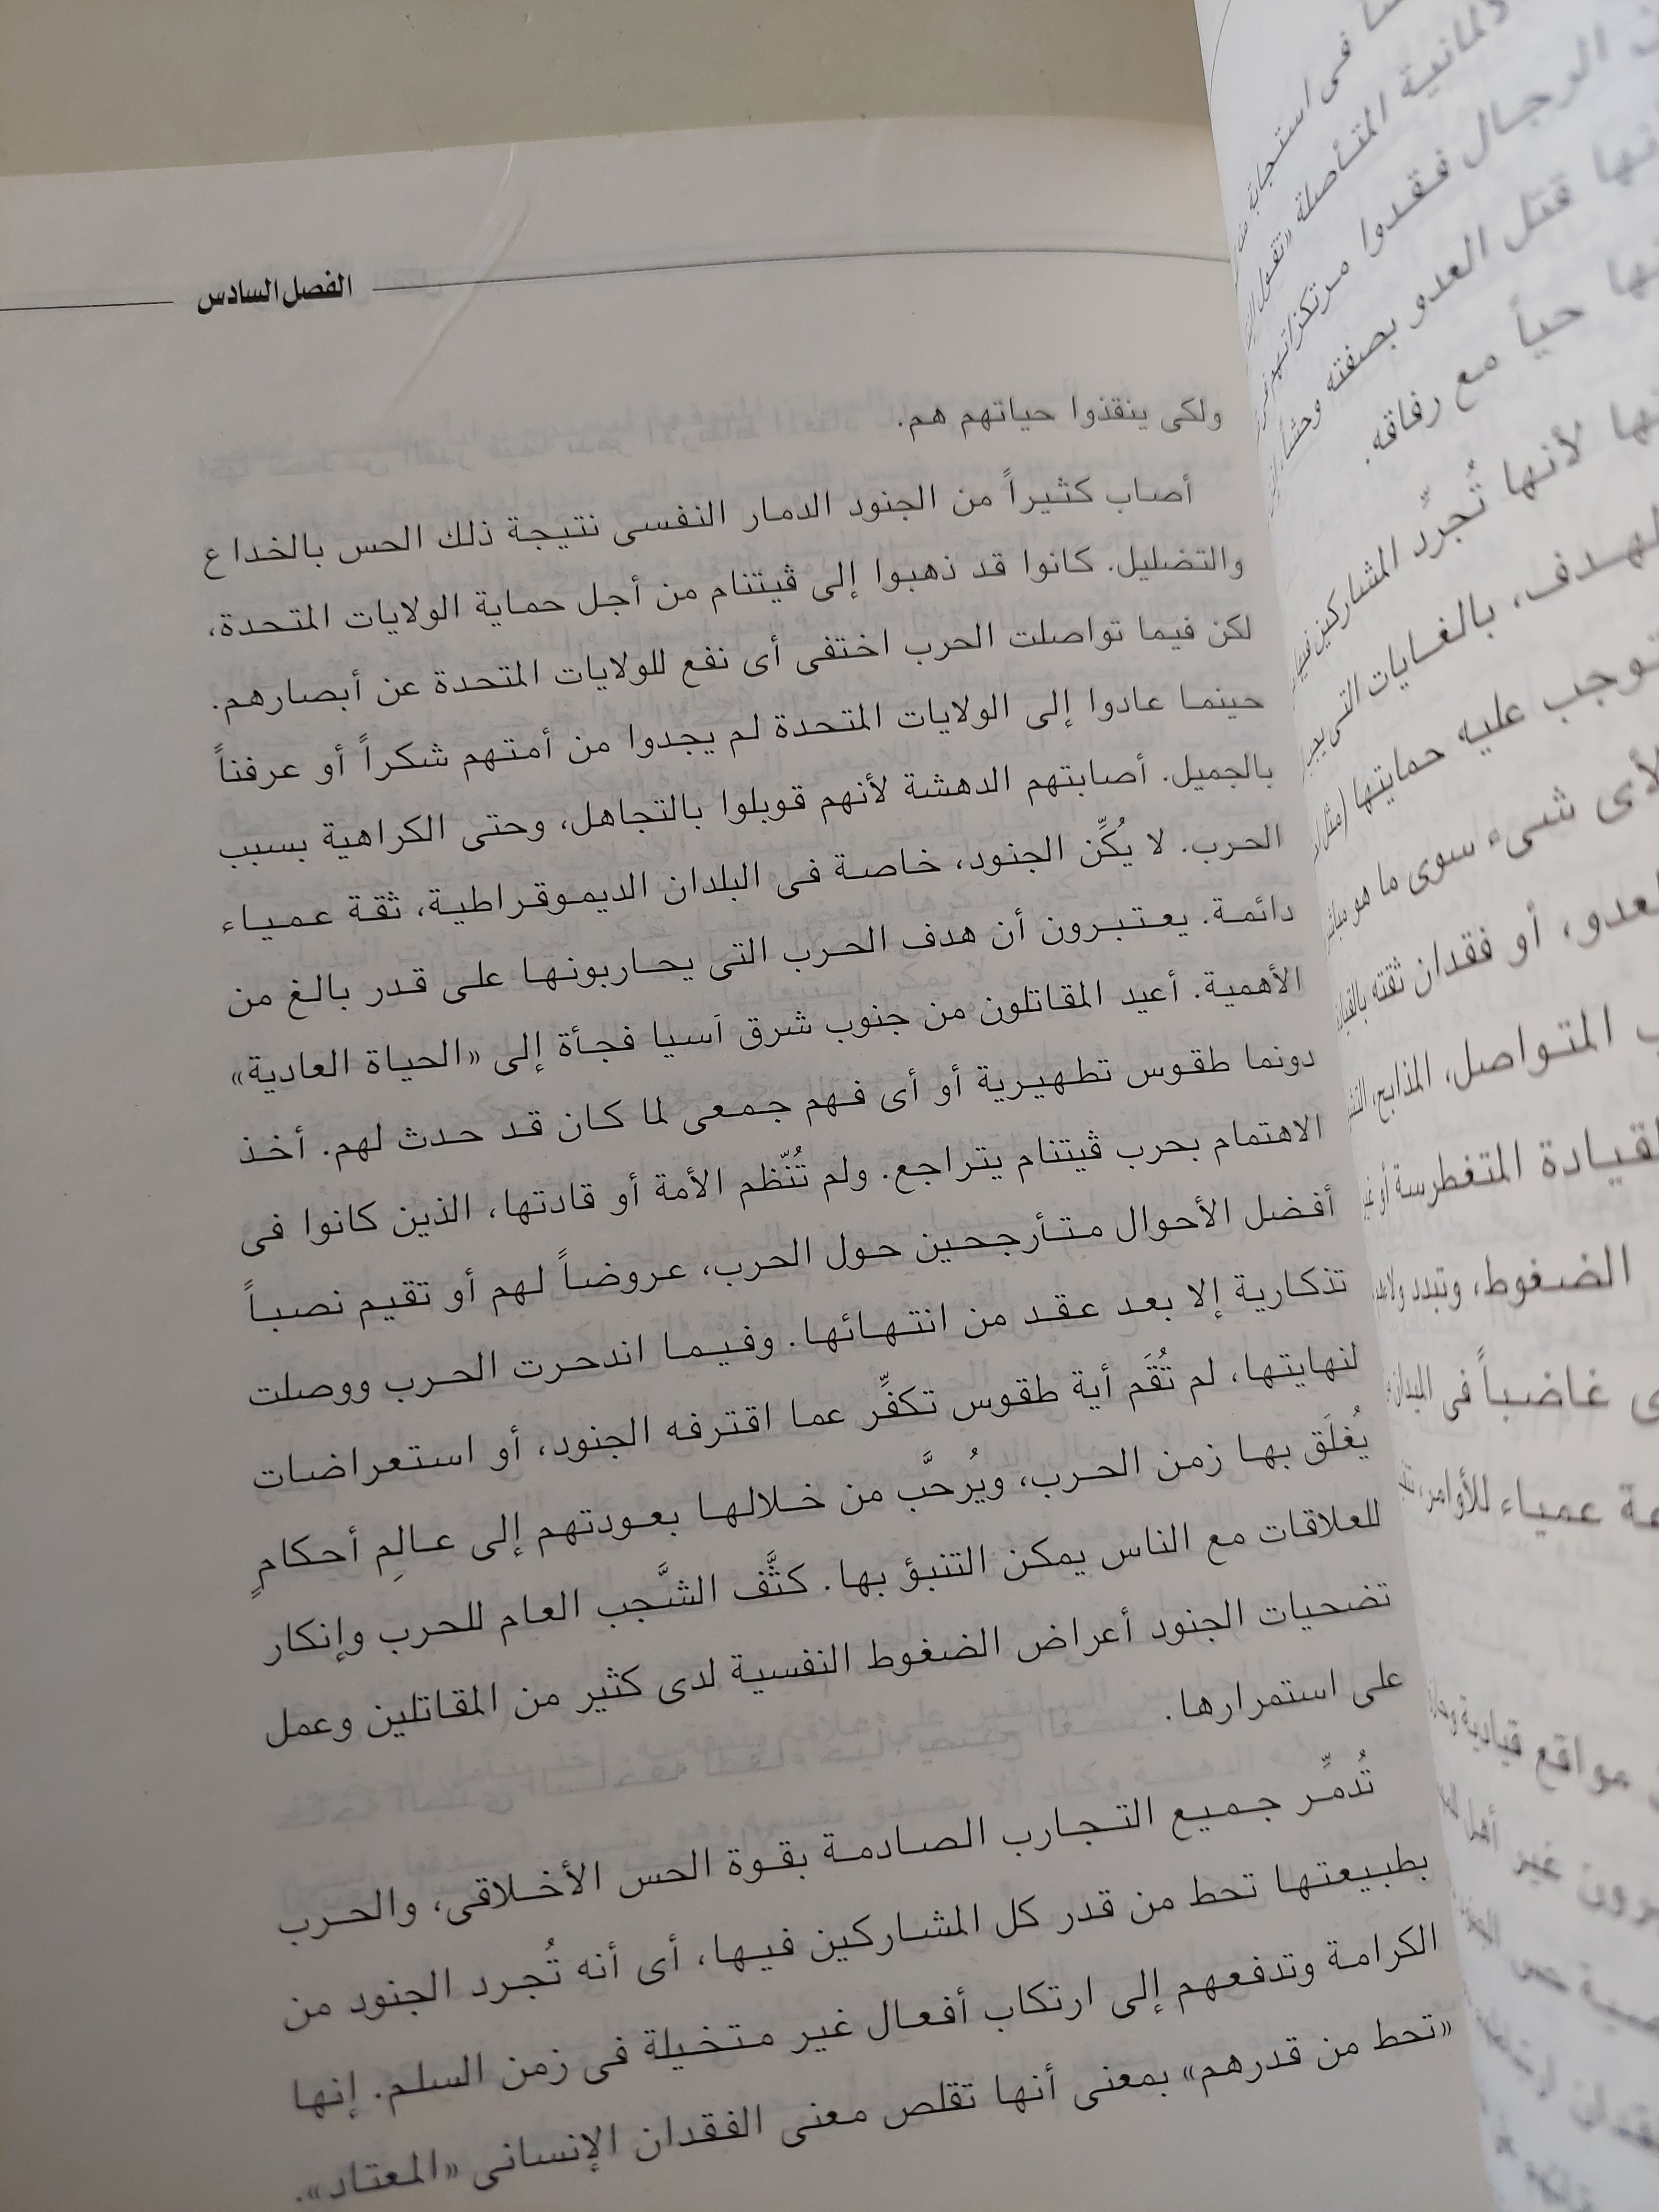 الفصل السادس
ولكى ينقذوا حياتهم هم.
أصاب كثيراً من الجنود الدمار النفسى نتيجة ذلك الحس بالخداع
والتضليل. كانوا قد ذهبوا إلى ڤيتنام من أجل حماية الولايات المتحدة،
لكن فيما تواصلت الحرب اختفى أى نفع للولايات المتحدة عن أبصارهم.
حينما عادوا إلى الولايات المتحدة لم يجدوا من أمتهم شكراً أو عرفناً
بالجميل. أصابتهم الدهشة لأنهم قوبلوا بالتجاهل، وحتى الكراهية بسبب
الحرب. لا يُكِّن الجنود، خاصة فى البلدان الديموقراطية، ثقة عمياء
دائمة. يعتبرون أن هدف الحرب التى يحاربونها على قدر بالغ من
الأهمية. أعيد المقاتلون من جنوب شرق آسيا فجأة إلى «الحياة العادية»
دونما طقوس تطهيرية أو أى فهم جمعى لما كان قد حدث لهم. أخذ
الاهتمام بحرب ڤيتنام يتراجع. ولم تُنّظم الأمة أو قادتها، الذين كانوا فى
أفضل الأحوال متأرجحين حول الحرب، عروضاً لهم أو تقيم نصباً
تذكارية إلا بعد عقد من انتهائها. وفيما اندحرت الحرب ووصلت
لنهايتها، لم تُقَم أية طقوس تكفِّر عما اقترفه الجنود، أو استعراضات
يُغلَق بها زمن الحرب، ويُرحَّب من خلالها بعودتهم إلى عالمِ أحكامٍ
للعلاقات مع الناس يمكن التنبؤ بها. كثَّف الشَّجب العام للحرب وإنكار
تضحيات الجنود أعراض الضغوط النفسية لدى كثير من المقاتلين وعمل
على استمرارها.
تُدمِّر جميع التجارب الصادمة بقوة الحس الأخلاقى، والحرب
بطبيعتها تحط من قدر كل المشاركين فيها، أى أنه تُجرد الجنود من
الكرامة وتدفعهم إلى ارتكاب أفعال غير متخيلة فى زمن السلم. إنها
«تحط من قدرهم» بمعنى أنها تقلص معنى الفقدان الإنسانى «المعتاد».
فى استجابة
الألمانية المتأصلة
الرجال فقدوا مرتكزاتهم
قتل العدو بصفته
حياً مع رفاقه.
لأنها تُجرِّد المشاركين
بالغايات التى
توجب عليه حمايتها
لأى شىء سوى ما هو
أو فقدان ثقته
المتواصل، المذابح،
المتغطرسة أو
الضغوط، وتبدد
غاضباً فى
عمياء للأوامر،
مواقع قيادية